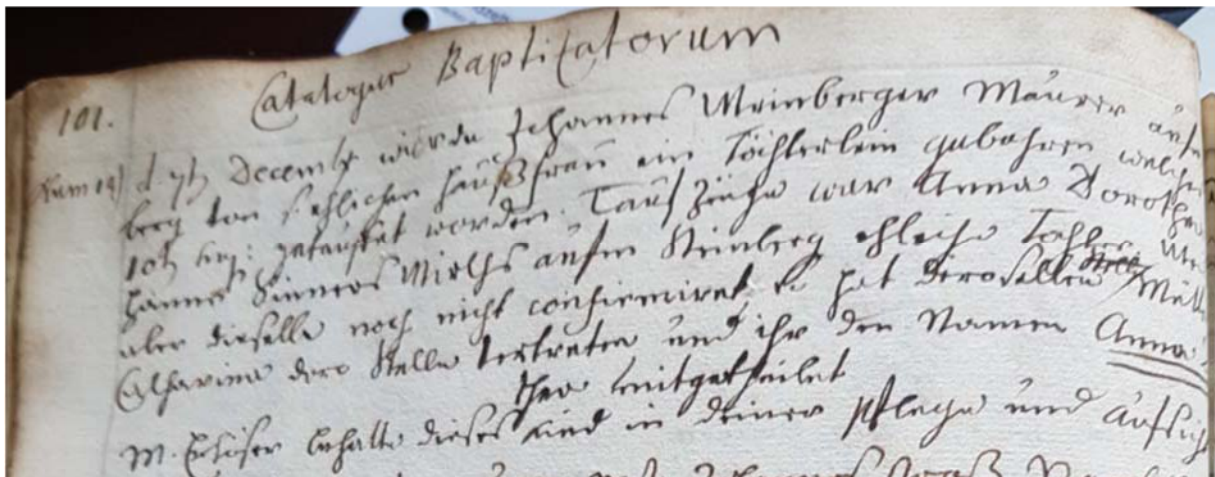 101.
Catalogus Baptisatorum
Num 19) d. 7t Decembr wurde Johannes Weinberger Maurer aufm
berg von s. ehlichen Haußfrau ein Töchterlein gebohren welches
10t huj: getauffet worden. Tauf Zeuge war Anna Dorothea
hannes Wirths aufm Steinberg ehleiche Tochter
aber dieselbe noch nicht confirmiret so hat deroselben Mutter
Catharina dero Stelle vertreten und ihr den Namen Anna
thea mitgetheilet
M. Erlöser behalte dieses Kind in deiner pflege und aufsicht
Johannes